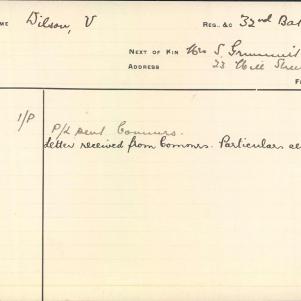 ME Dilson, V REG. &C 32nd Bat
NEXT OF KIN Mrs S.
ADDRESS 23 Hill Stree
F
1/P P/L sent Comons.
Letter received from Comons. Particulars al